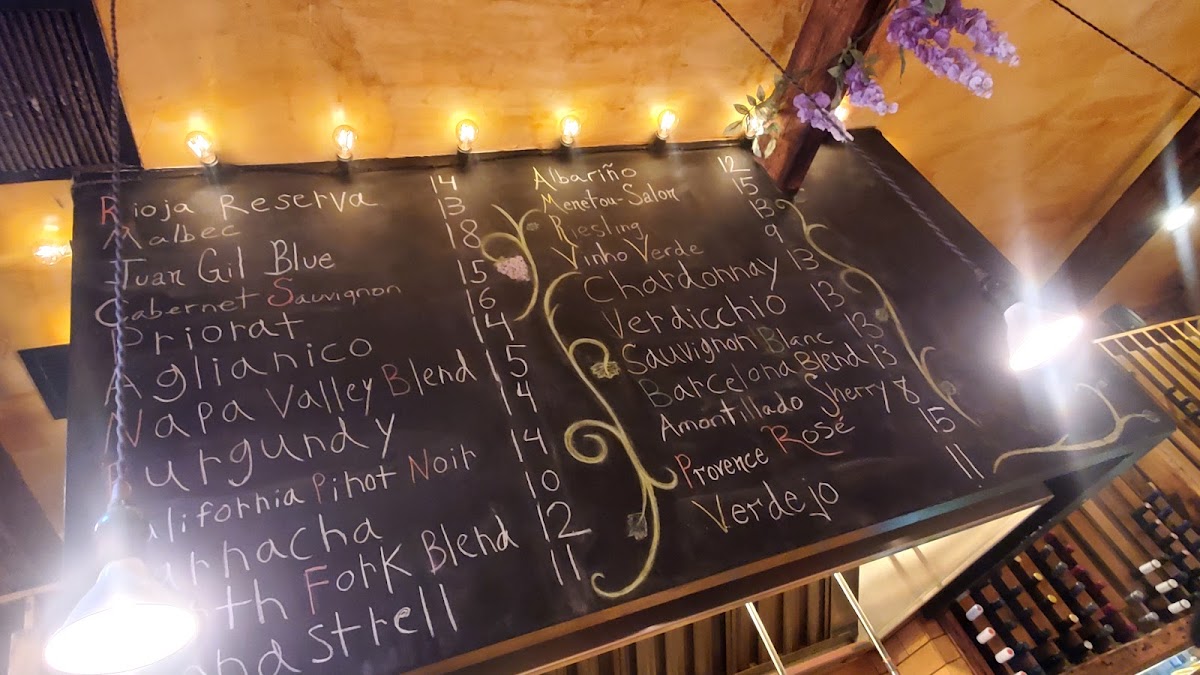 Rioja Reserva 14
Malbec 13
Juan Gil Blue 18
Cabernet Sauvignon 15
Priorat 16
Aglianico 14
Napa Valley Blend 15
Burgundy 14
California Pinot Noir 14
Garnacha 10
Fork Blend 12
11
Albariño 12
Menetou-Salon 15
Riesling 13
Vinho Verde 9
Chardonnay 13
Verdicchio 13
Sauvignon Blanc 13
Barcelona Blend 13
Amontillado Sherry 8
Provence Rosé 15
Verdejo 11